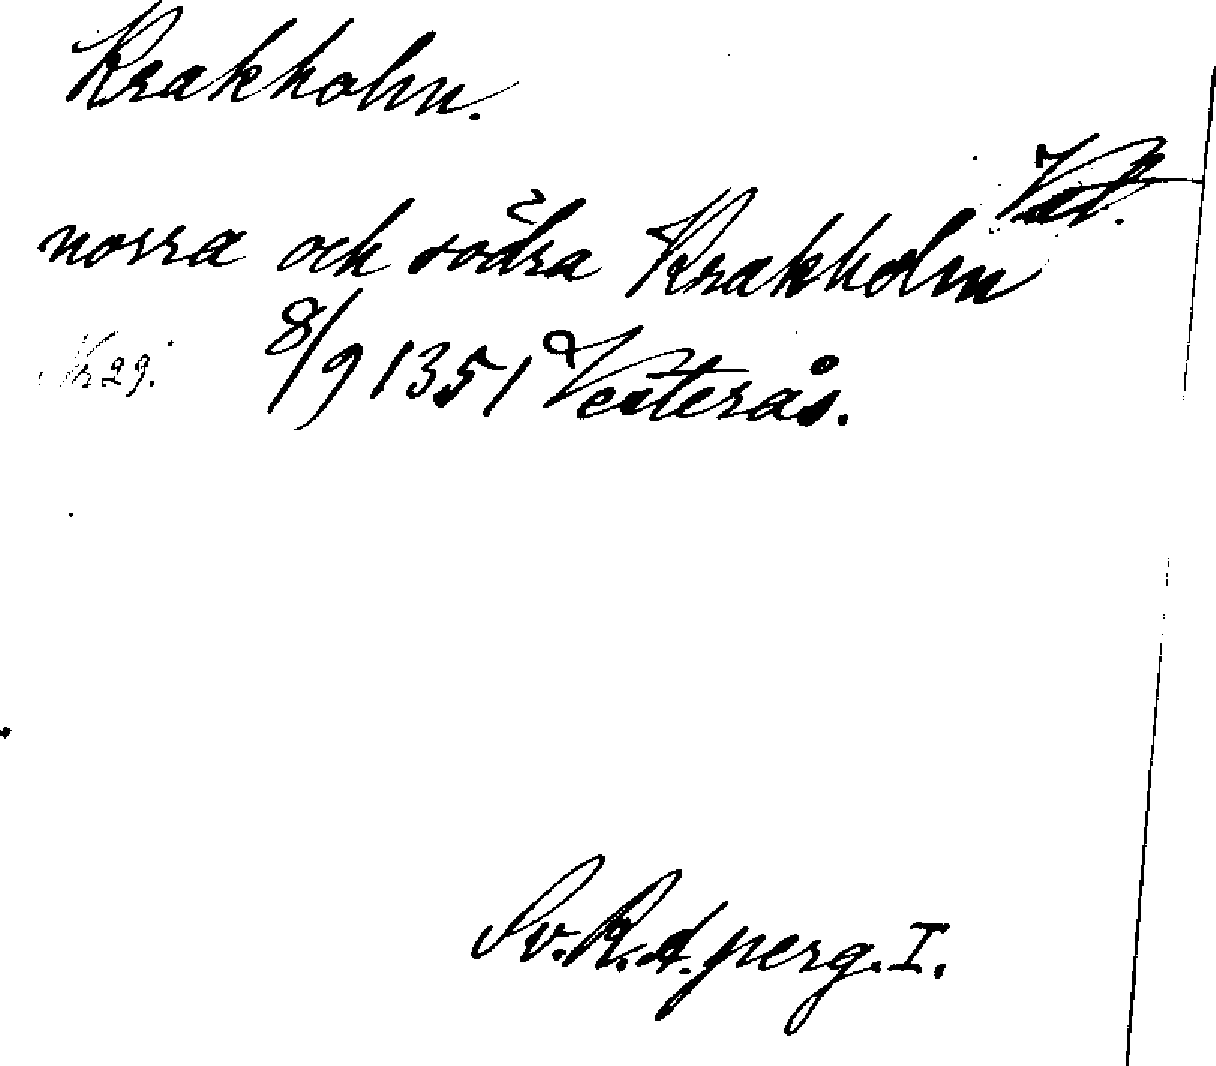 Krakholm.
norra och södra Krakholm
Nr 29. 8/9 1351 Vesterås.
Sv. R. A. perg. I.